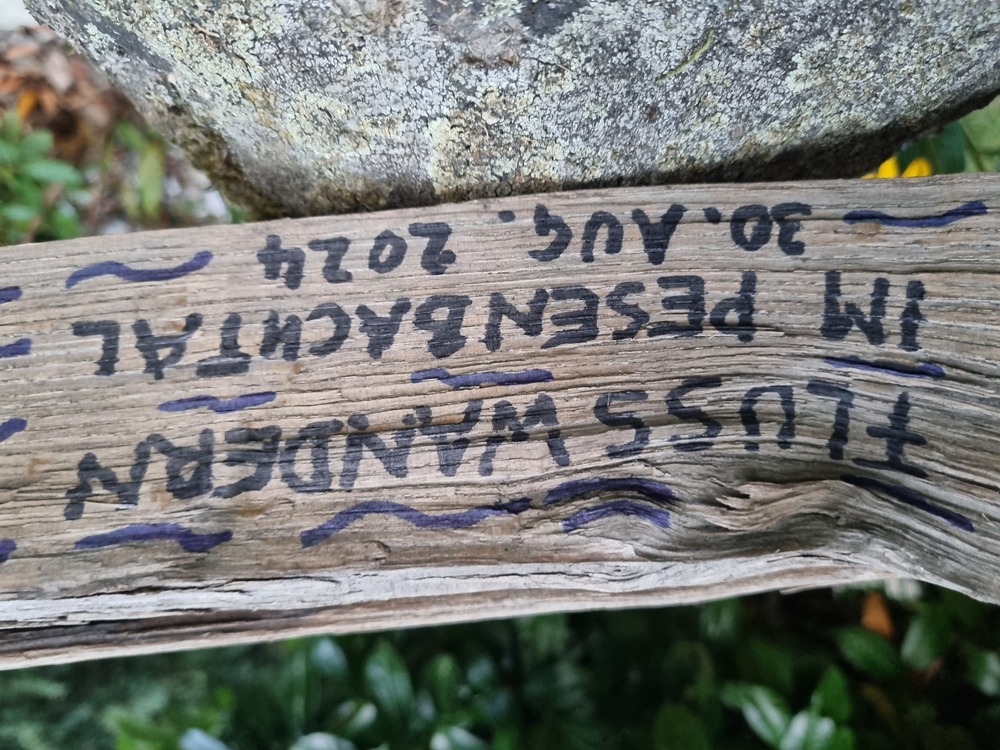 FLUSSWANDERN
IM PESENBACHTAL
30. AUG. 2024